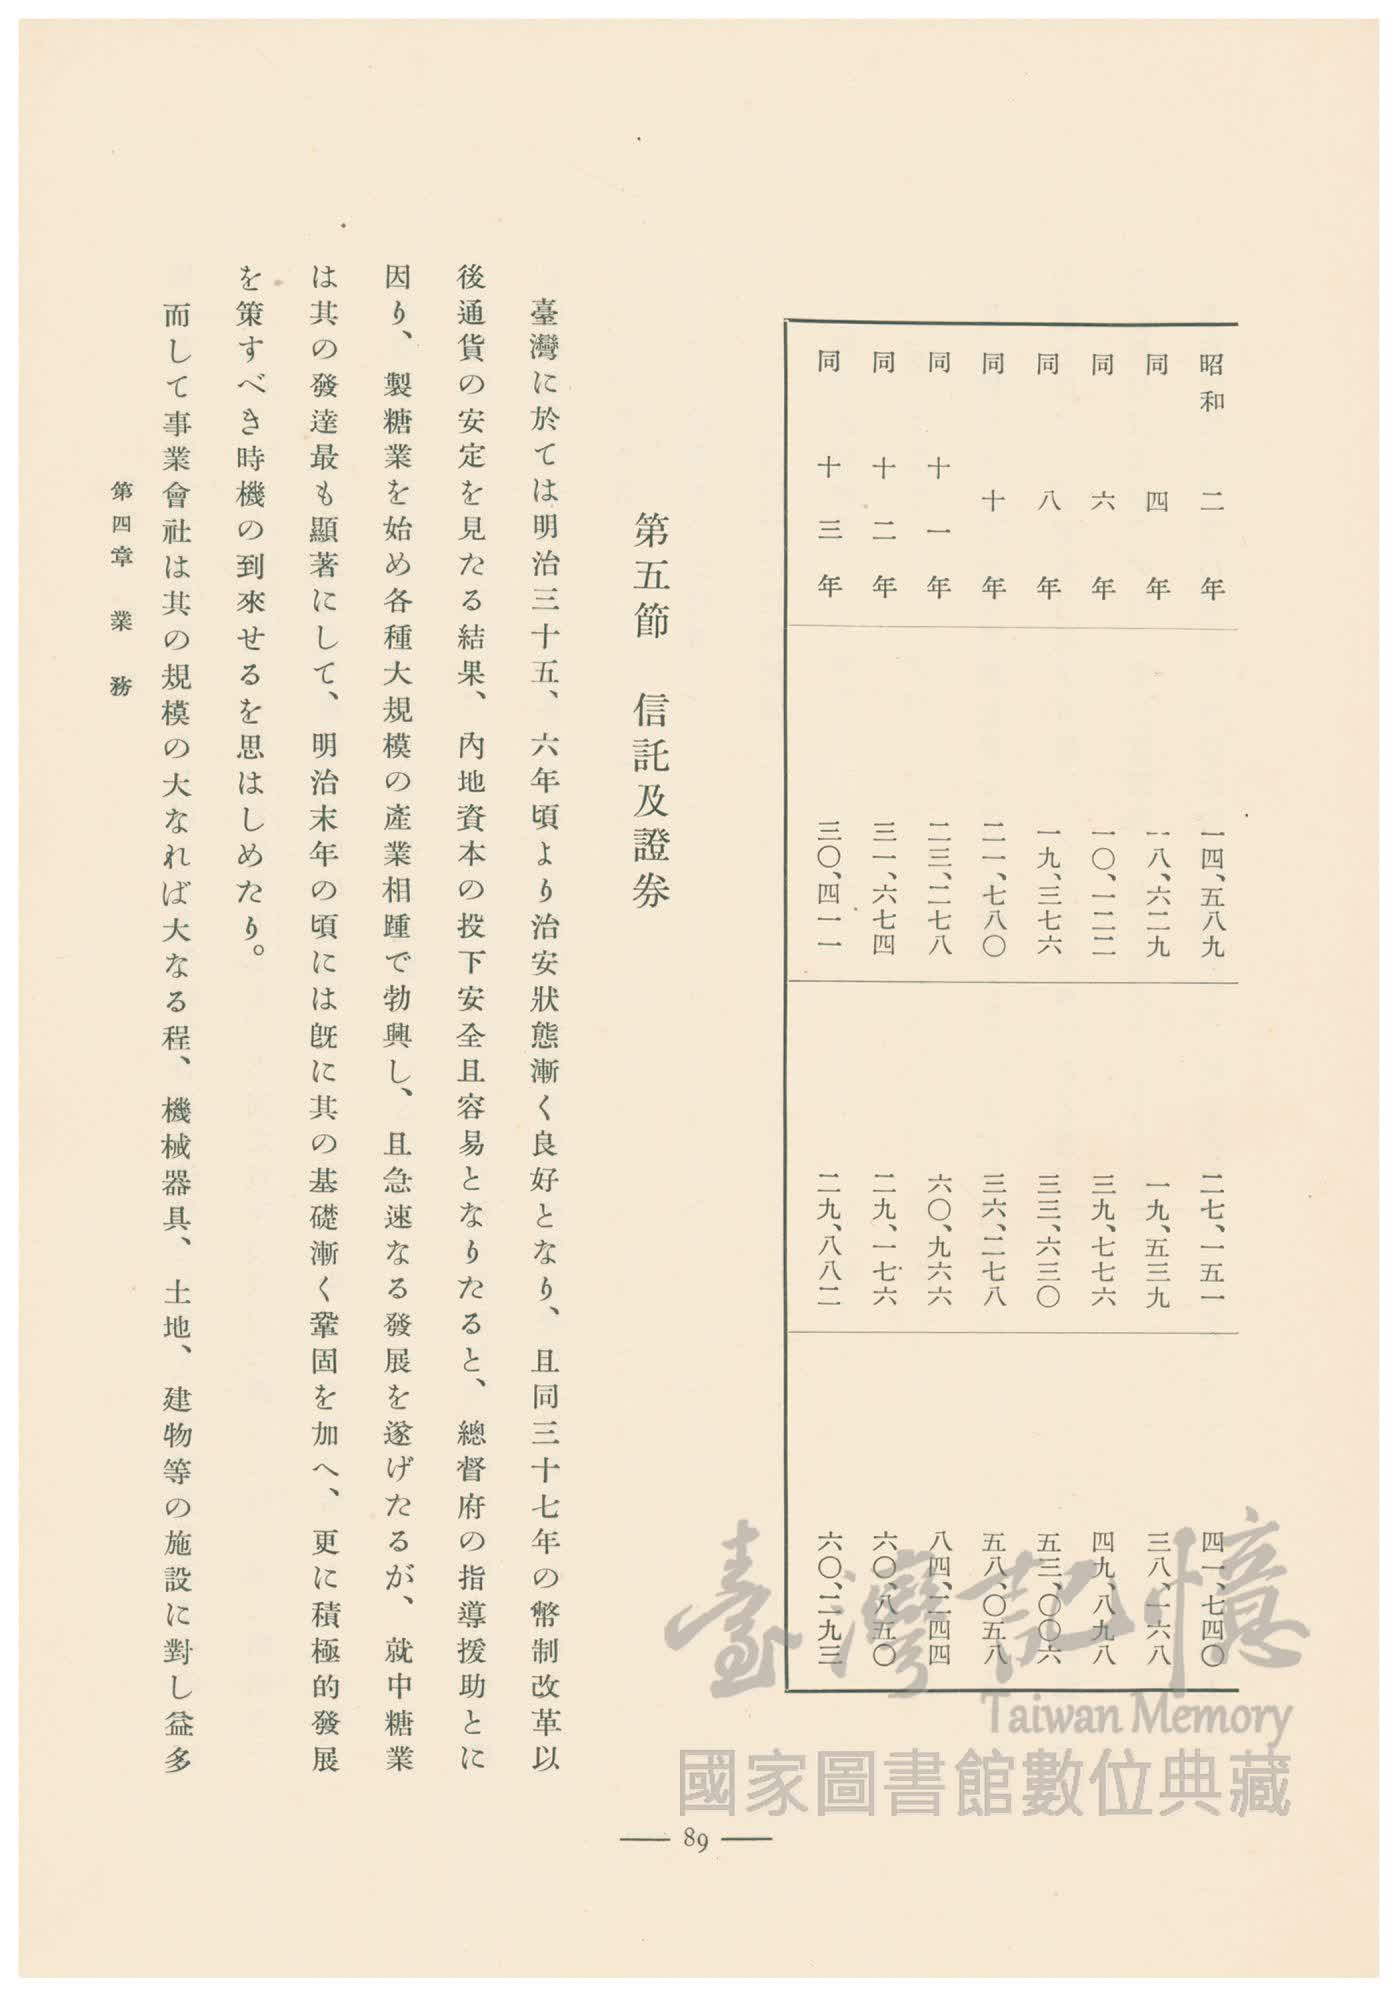 昭和 二 年 一四、五八九 二七、一五一 四一、七四〇
同 四 年 一八、六二九 一九、五三九 三八、一六八
同 六 年 一〇、一二二 三九、七七六 四九、八九八
同 八 年 一九、三七六 三三、六三〇 五三、〇〇六
同 十 年 二一、七八〇 三六、二七八 五八、〇五八
同 十一 年 二三、二七八 六〇、九六六 八四、二四四
同 十二 年 三一、六七四 二九、一七六 六〇、八五〇
同 十三 年 三〇、四一一 二九、八八二 六〇、二九三
第五節 信託及證券
臺灣に於ては明治三十五、六年頃より治安狀態漸く良好となり、且同三十七年の幣制改革以
後通貨の安定を見たる結果、內地資本の投下安全且容易となりたると、總督府の指導援助とに
因り、製糖業を始め各種大規模の產業相踵で勃興し、且急速なる發展を遂げたるが、就中糖業
は其の發達最も顯著にして、明治末年の頃には既に其の基礎漸く鞏固を加へ、更に積極的發展
を策すべき時機の到來せるを思はしめたり。
而して事業會社は其の規模の大なれば大なる程、機械器具、土地、建物等の施設に對し益多
第四章 業務
89
臺灣記憶
Taiwan Memory
國家圖書館數位典藏